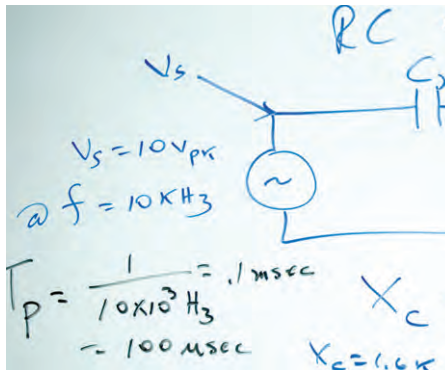 RC
Vs
C
Vs = 10Vpk
~
@ f = 10KHz
Tp = 1 / 10x10³ Hz = .1msec
= 100 µsec
Xc
Xc = 1.6K